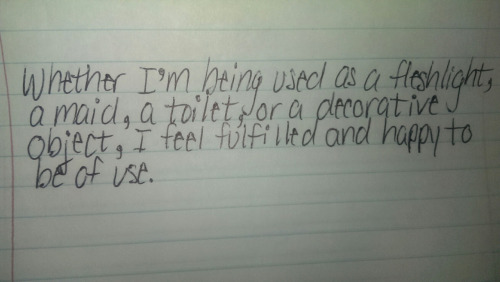 Whether I'm being used as a fleshlight,
a maid, a toilet, or a decorative
object, I feel fulfilled and happy to
be of use.